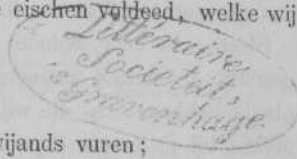 eischen voldeed, welke wij
Litteraire
Societeit,
's Gravenhage.
vijands vuren;